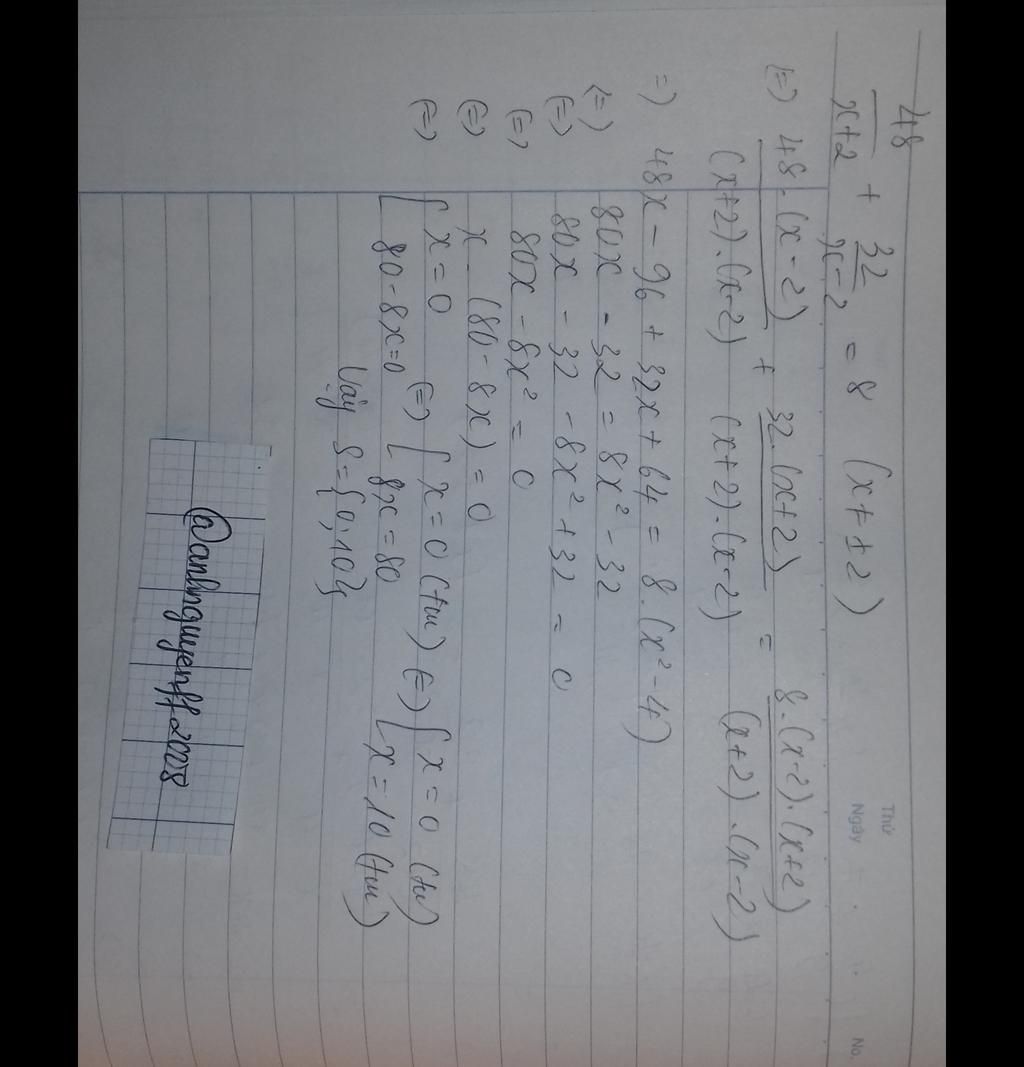 Thứ
Ngày
No.
48/x+2 + 32/x-2 = 8 (x ≠ ±2)
(=) 48.(x-2)/(x+2).(x-2) + 32.(x+2)/(x+2).(x-2) = 8.(x-2).(x+2)/(x+2).(x-2)
=) 48x - 96 + 32x + 64 = 8.(x² - 4)
(=) 80x - 32 = 8x² - 32
(=) 80x - 32 - 8x² + 32 = 0
(=) 80x - 8x² = 0
(=) x.(80 - 8x) = 0
(=) [ x = 0 (=) [ x = 0 (tm) (=) [ x = 0 (tm)
80 - 8x = 0 8x = 80 x = 10 (tm)
Vậy S = {0, 10}
@anhnguyenff2008